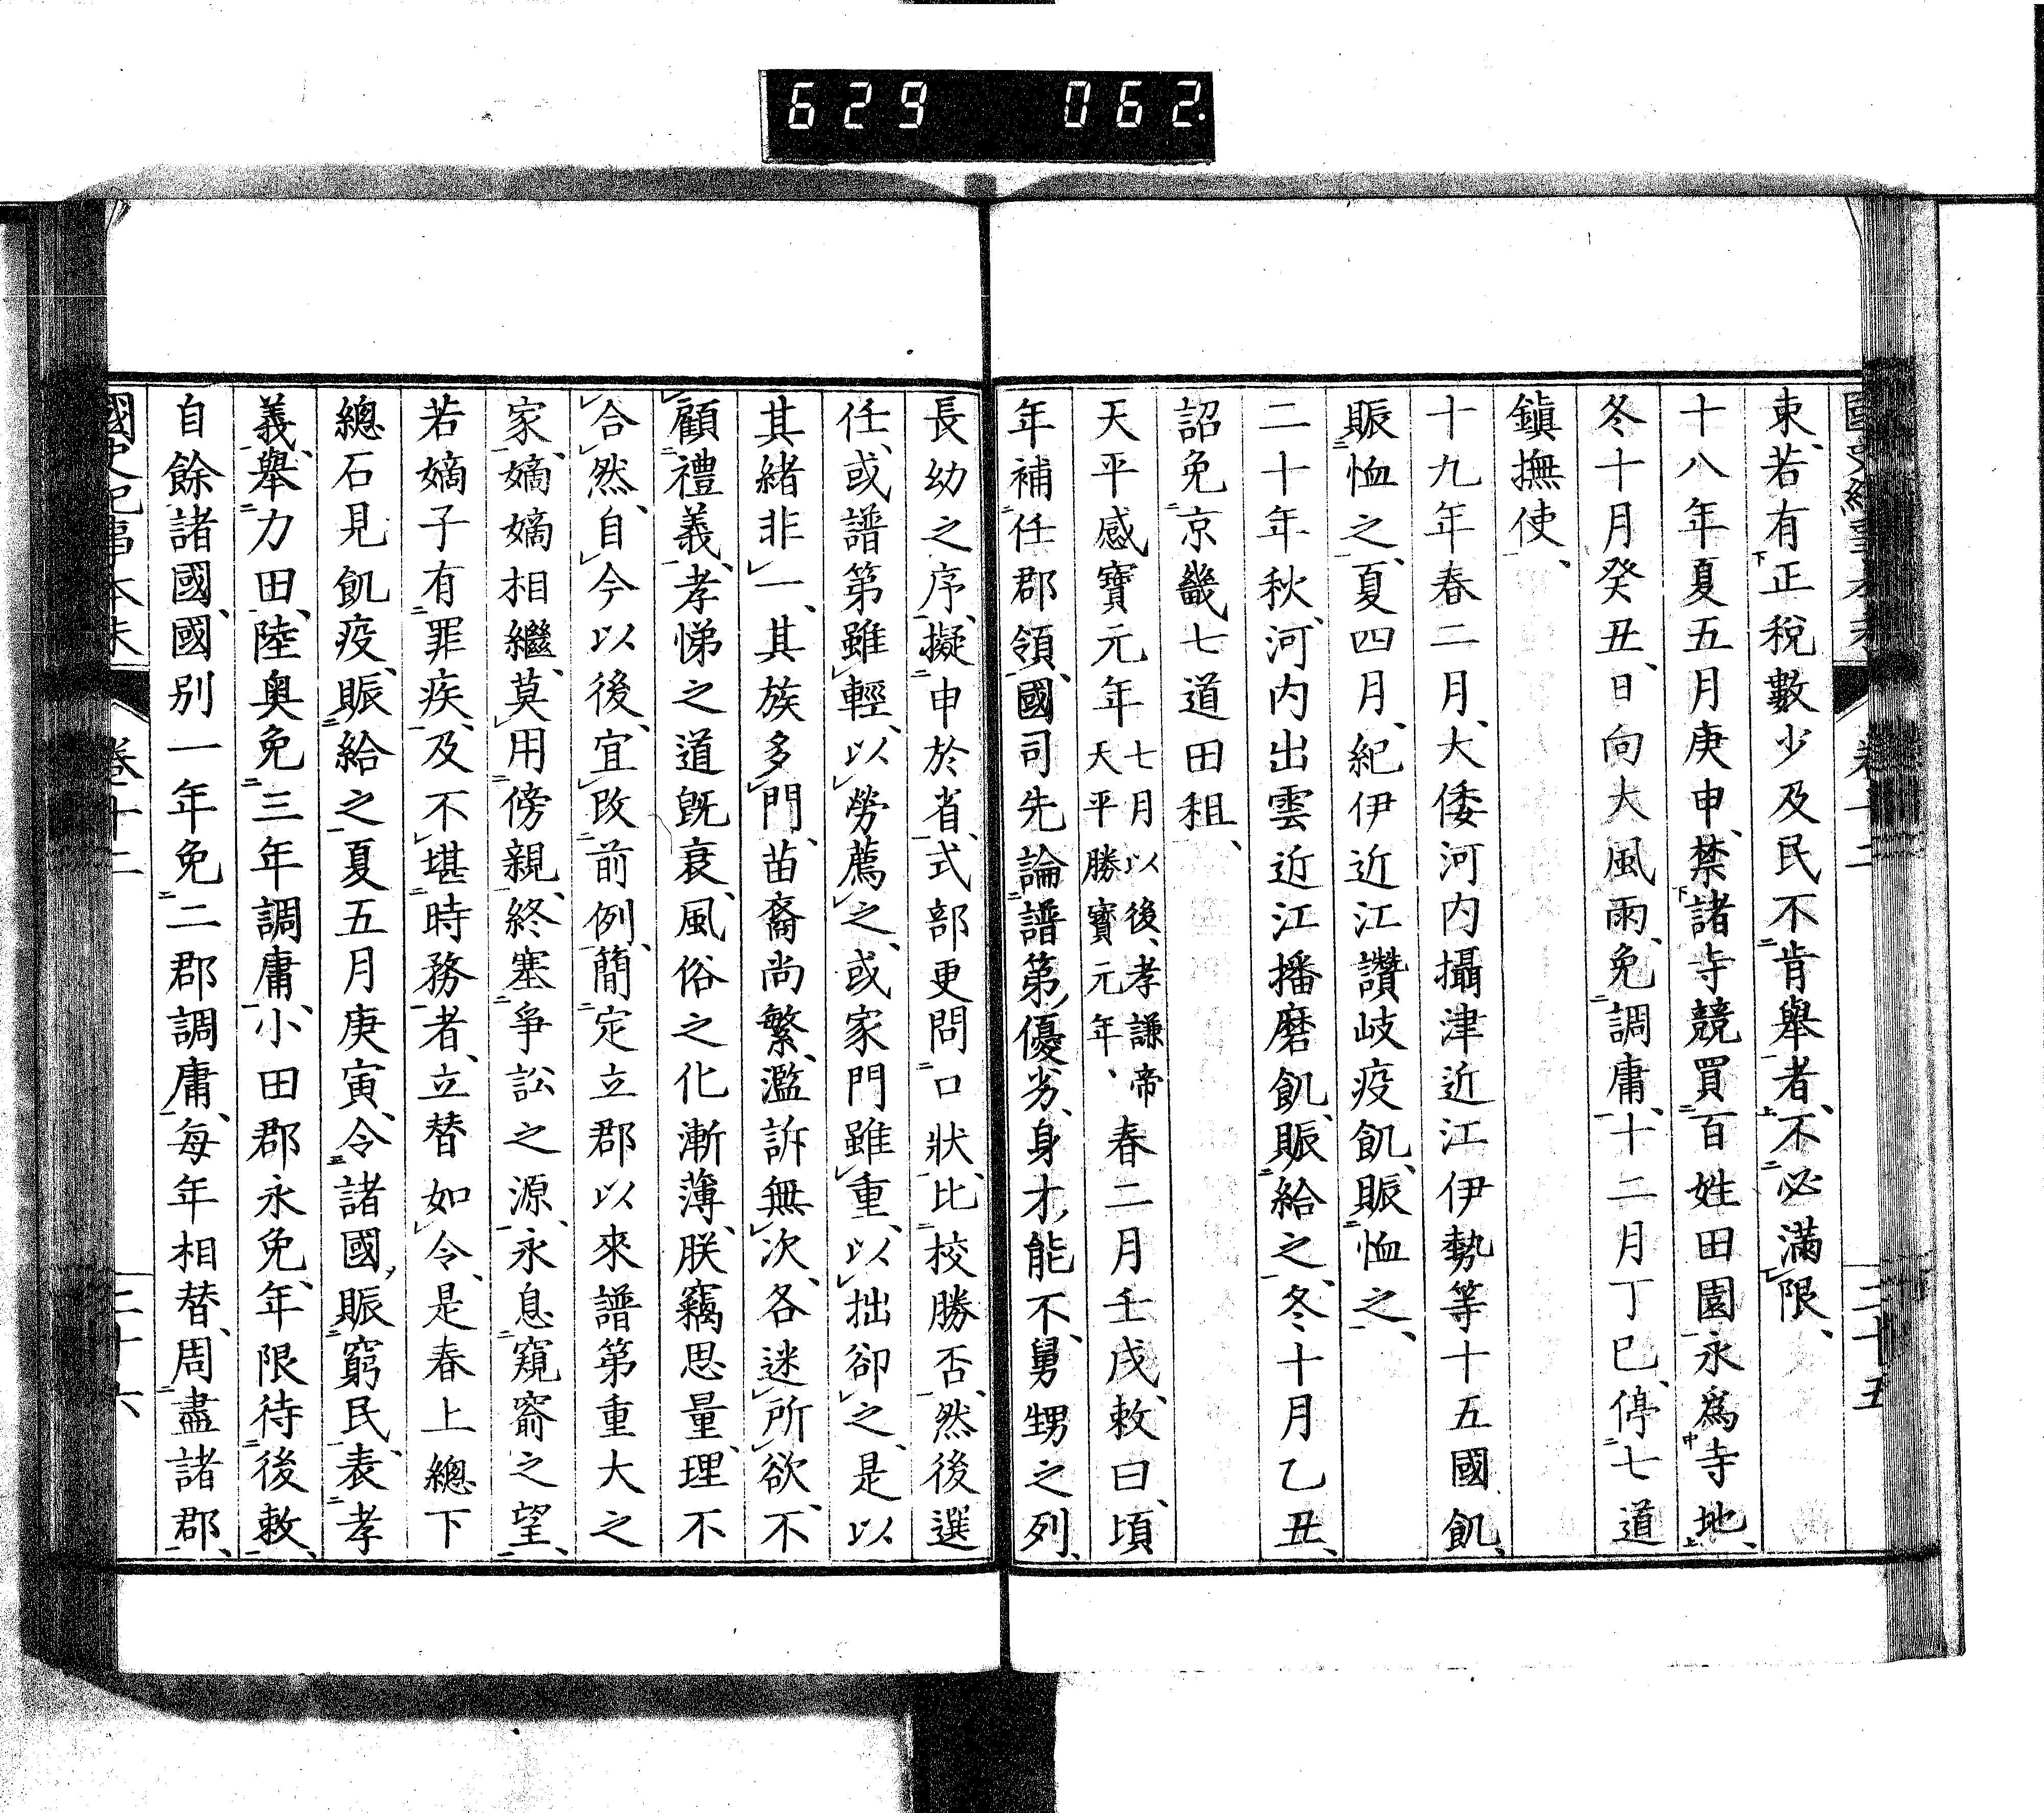 629 062
束、若有正稅數少及民不肯舉者、不必滿限、
十八年夏五月庚申、禁諸寺競買百姓田園永爲寺地、
冬十月癸丑、日向大風雨、免調庸、十二月丁巳、停七道
鎭撫使、
十九年春二月、大倭河內攝津近江伊勢等十五國飢、
賑恤之、夏四月、紀伊近江讚岐疫飢、賑恤之、
二十年秋、河內出雲近江播磨飢、賑給之、冬十月乙丑、
詔免京畿七道田租、
天平感寶元年七月以後、孝謙帝天平勝寶元年、春二月壬戌、敕曰、頃
年補任郡領、國司先論譜第優劣、身才能不、舅甥之列、
長幼之序、擬申於省、式部更問口狀、比校勝否、然後選
任、或譜第雖輕、以勞薦之、或家門雖重、以拙卻之、是以
其緒非一、其族多門、苗裔尚繁、濫訴無次、各迷所欲、不
顧禮義、孝悌之道既衰、風俗之化漸薄、朕竊思量、理不
合然、自今以後、宜改前例、簡定立郡以來譜第重大之
家、嫡嫡相繼、莫用傍親、終塞爭訟之源、永息窺窬之望、
若嫡子有罪疾、及不堪時務者、立替如令、是春上總下
總石見飢疫、賑給之、夏五月庚寅、令諸國、賑窮民、表孝
義、舉力田、陸奧免三年調庸、小田郡永免、年限待後敕、
自餘諸國、國別一年免二郡調庸、每年相替、周盡諸郡、
國史紀事本末 卷十二 二十六